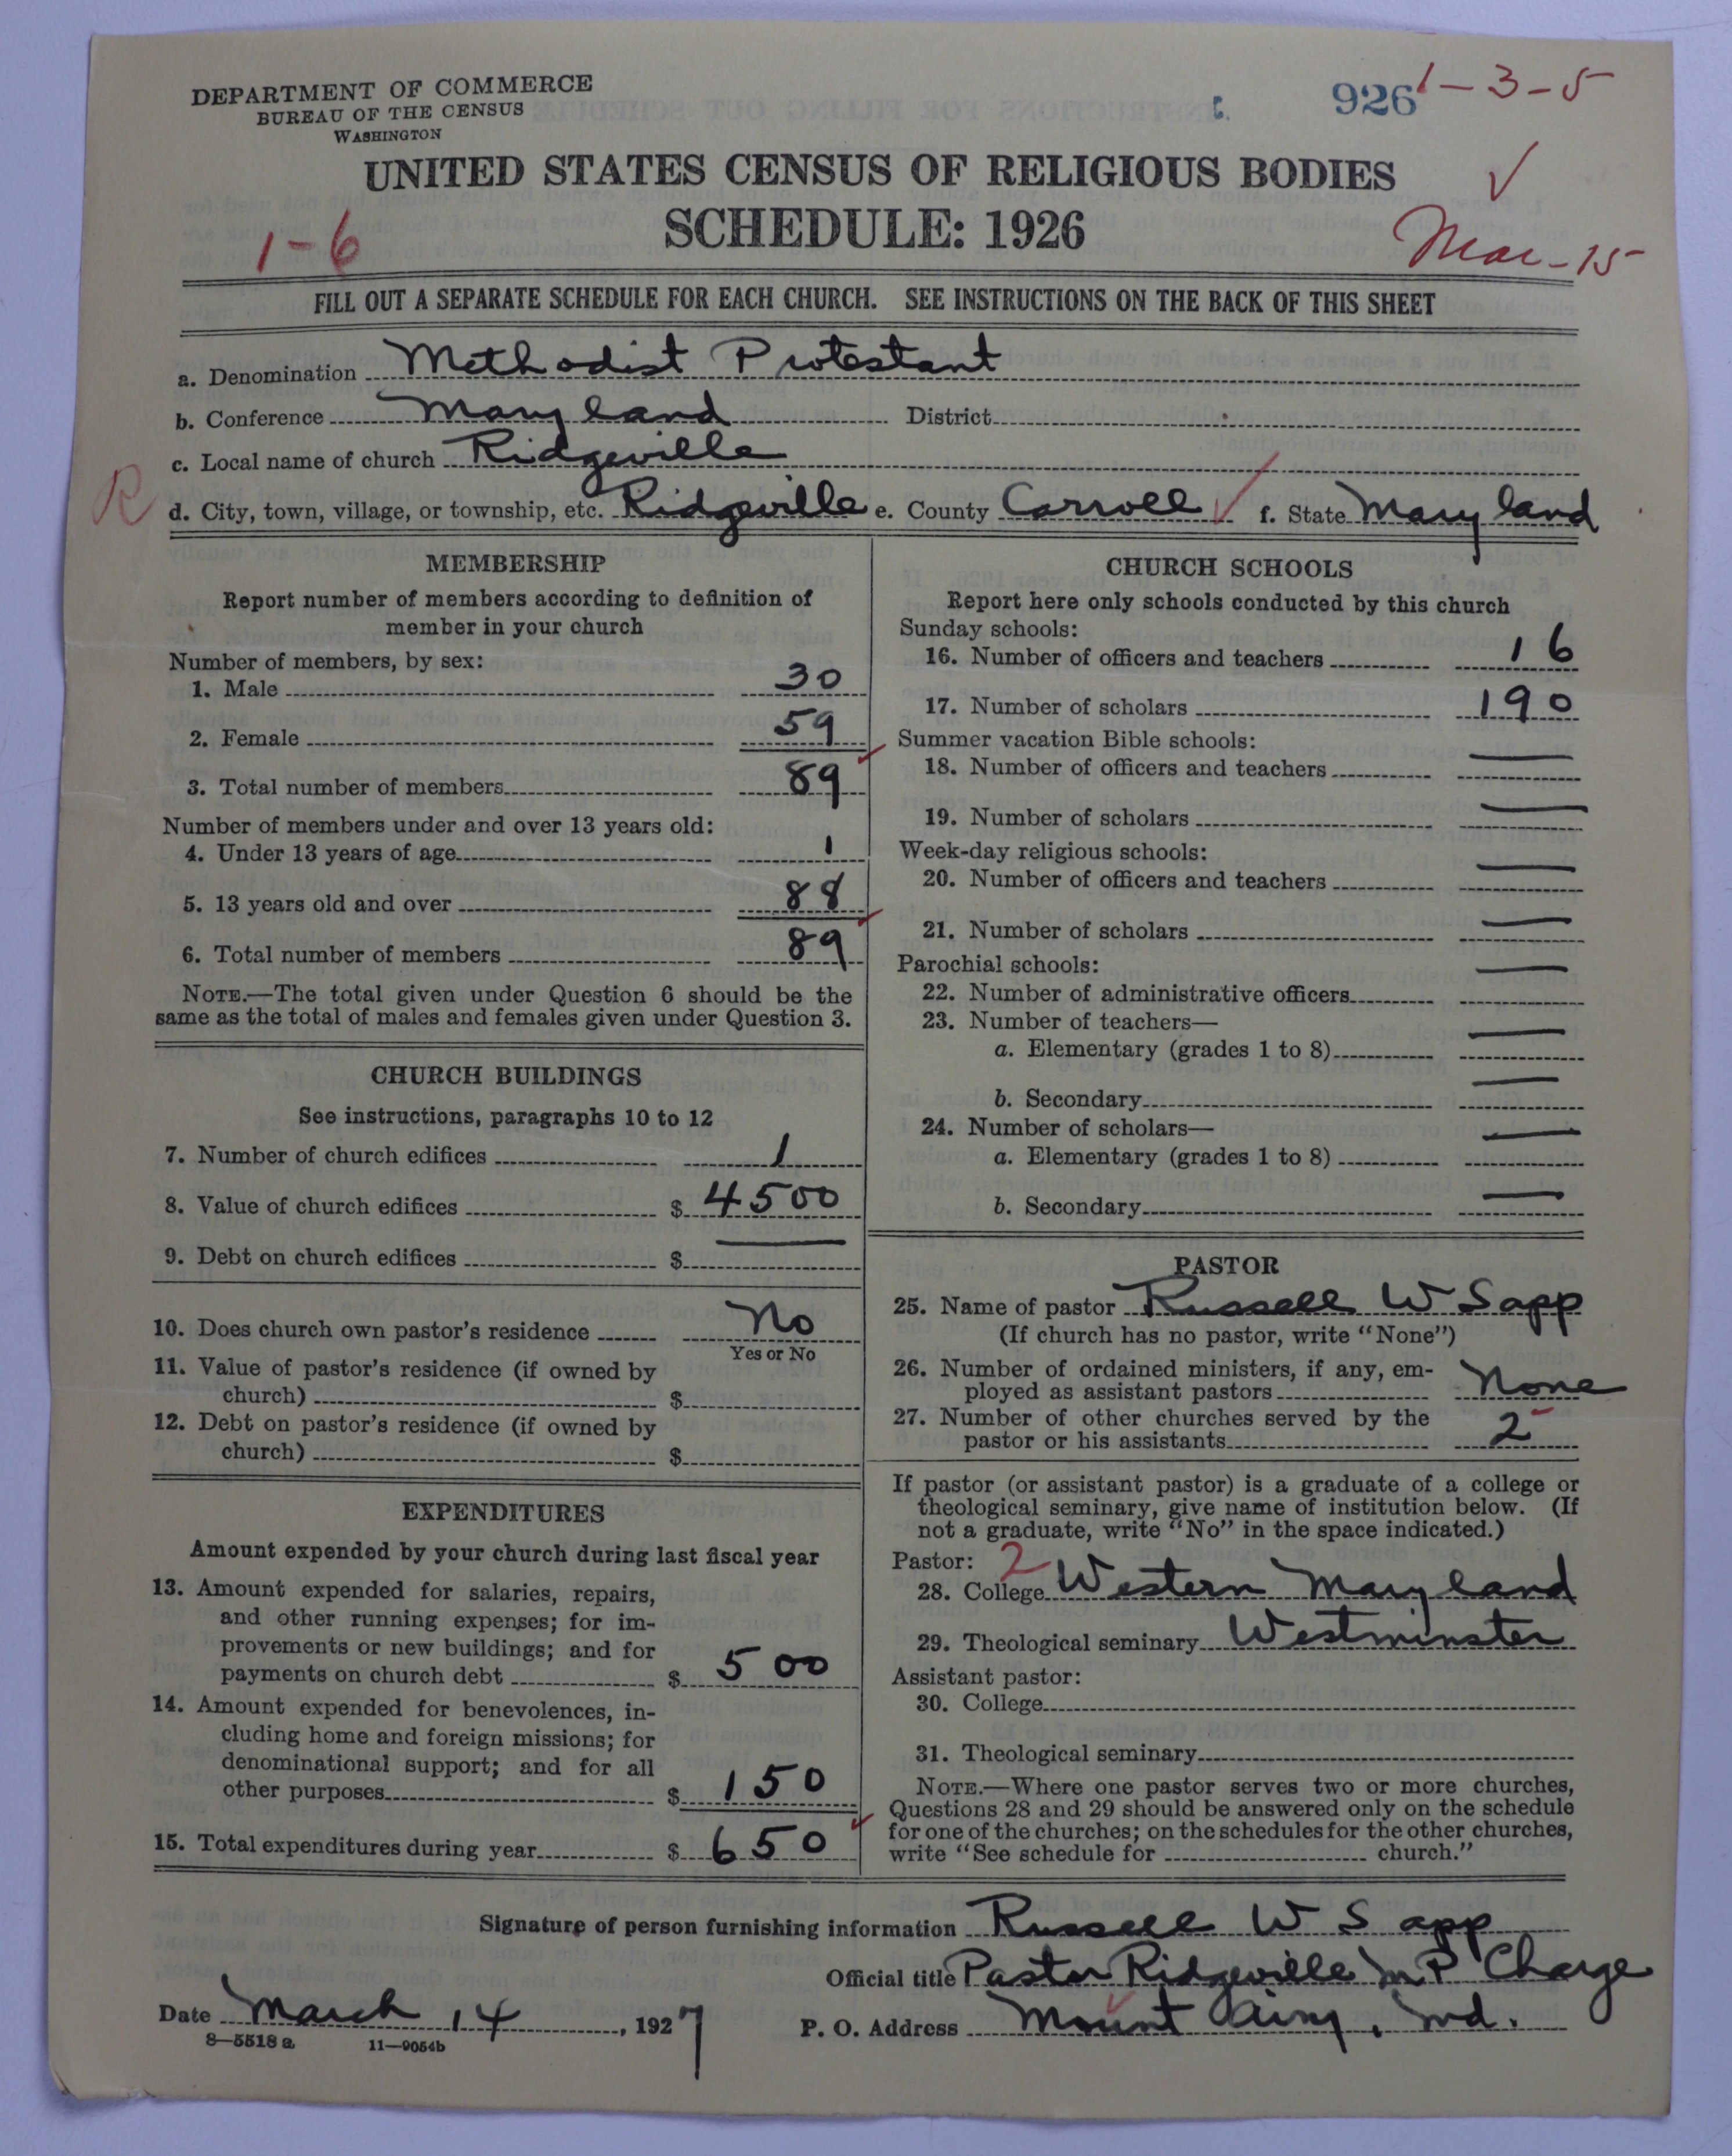 DEPARTMENT OF COMMERCE
BUREAU OF THE CENSUS
WASHINGTON
926 1-3-5
UNITED STATES CENSUS OF RELIGIOUS BODIES
SCHEDULE: 1926
1-6
Mar-15
FILL OUT A SEPARATE SCHEDULE FOR EACH CHURCH. SEE INSTRUCTIONS ON THE BACK OF THIS SHEET
a. Denomination Methodist Protestant
b. Conference Maryland District
c. Local name of church Ridgeville
R
d. City, town, village, or township, etc. Ridgeville e. County Carroll f. State Maryland
MEMBERSHIP
Report number of members according to definition of
member in your church
Number of members, by sex:
1. Male 30
2. Female 59
3. Total number of members 89
Number of members under and over 13 years old:
4. Under 13 years of age 1
5. 13 years old and over 88
6. Total number of members 89
NOTE.—The total given under Question 6 should be the
same as the total of males and females given under Question 3.
CHURCH BUILDINGS
See instructions, paragraphs 10 to 12
7. Number of church edifices 1
8. Value of church edifices $ 4500
9. Debt on church edifices $ —
10. Does church own pastor's residence No
Yes or No
11. Value of pastor's residence (if owned by
church) $
12. Debt on pastor's residence (if owned by
church) $
EXPENDITURES
Amount expended by your church during last fiscal year
13. Amount expended for salaries, repairs,
and other running expenses; for im-
provements or new buildings; and for
payments on church debt $ 500
14. Amount expended for benevolences, in-
cluding home and foreign missions; for
denominational support; and for all
other purposes $ 150
15. Total expenditures during year $ 650
CHURCH SCHOOLS
Report here only schools conducted by this church
Sunday schools:
16. Number of officers and teachers 16
17. Number of scholars 190
Summer vacation Bible schools:
18. Number of officers and teachers —
19. Number of scholars —
Week-day religious schools:
20. Number of officers and teachers —
21. Number of scholars —
Parochial schools:
22. Number of administrative officers —
23. Number of teachers—
a. Elementary (grades 1 to 8) —
b. Secondary —
24. Number of scholars—
a. Elementary (grades 1 to 8) —
b. Secondary —
PASTOR
25. Name of pastor Russell W Sapp
(If church has no pastor, write "None")
26. Number of ordained ministers, if any, em-
ployed as assistant pastors None
27. Number of other churches served by the
pastor or his assistants 2
If pastor (or assistant pastor) is a graduate of a college or
theological seminary, give name of institution below. (If
not a graduate, write "No" in the space indicated.)
Pastor: 2
28. College Western Maryland
29. Theological seminary Westminster
Assistant pastor:
30. College
31. Theological seminary
NOTE.—Where one pastor serves two or more churches,
Questions 28 and 29 should be answered only on the schedule
for one of the churches; on the schedules for the other churches,
write "See schedule for church."
Signature of person furnishing information Russell W Sapp
Official title Pastor Ridgeville M P Charge
Date March 14, 1927
P. O. Address Mount Airy, Md.
8—5518 a 11—9054b